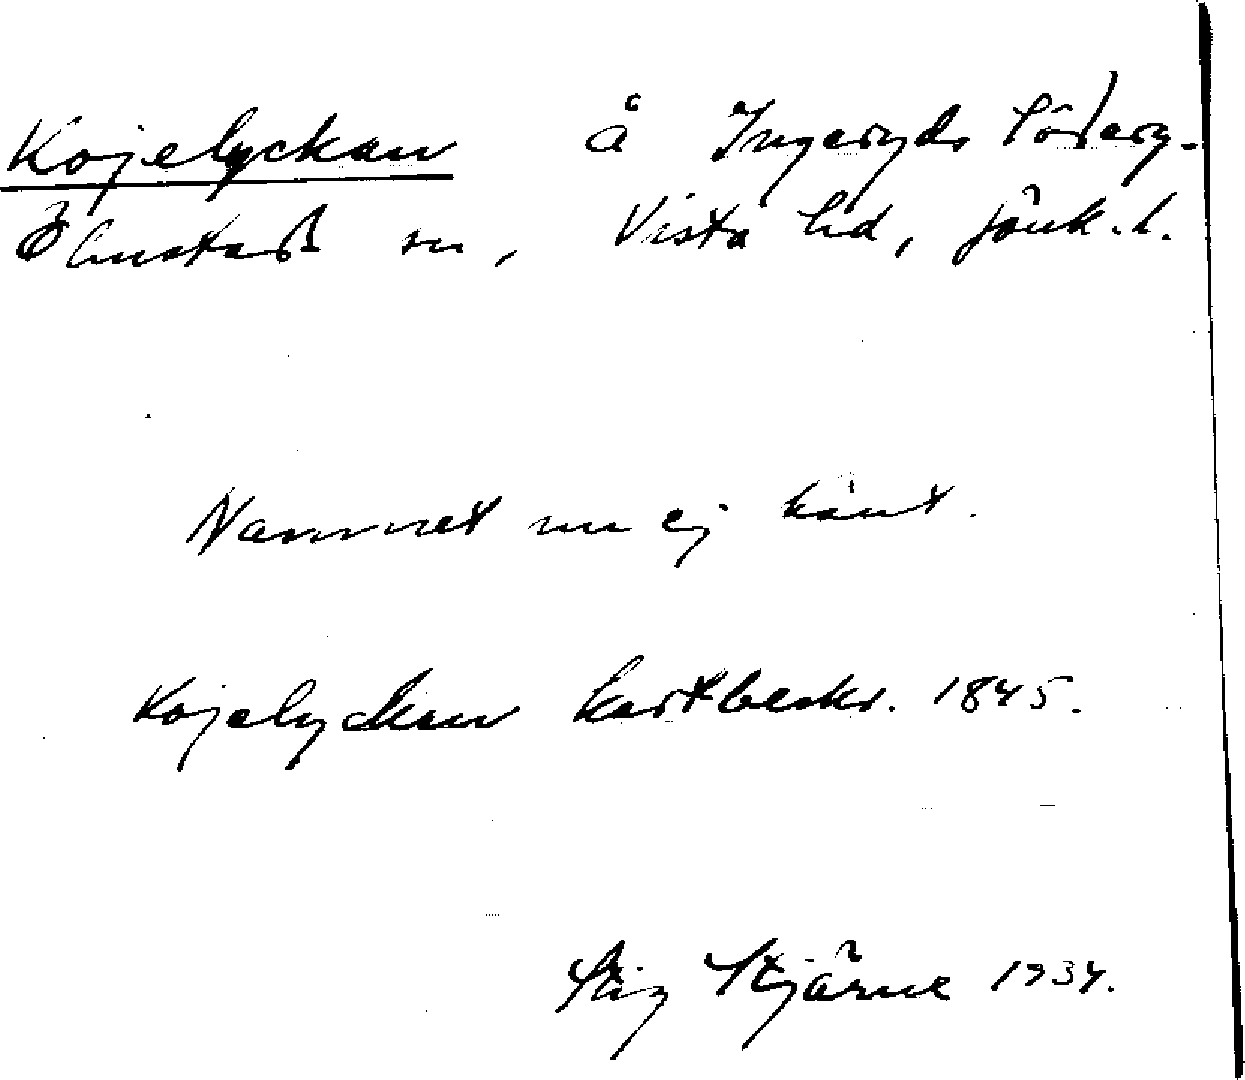 Kojelyckan å Ingaryds Södreg.
Ölmstad sn, Vista hd, Jönk. l.
Namnet nu ej känt.
Kojelyckan kartbeskr. 1845.
Stig Stjärne 1934.